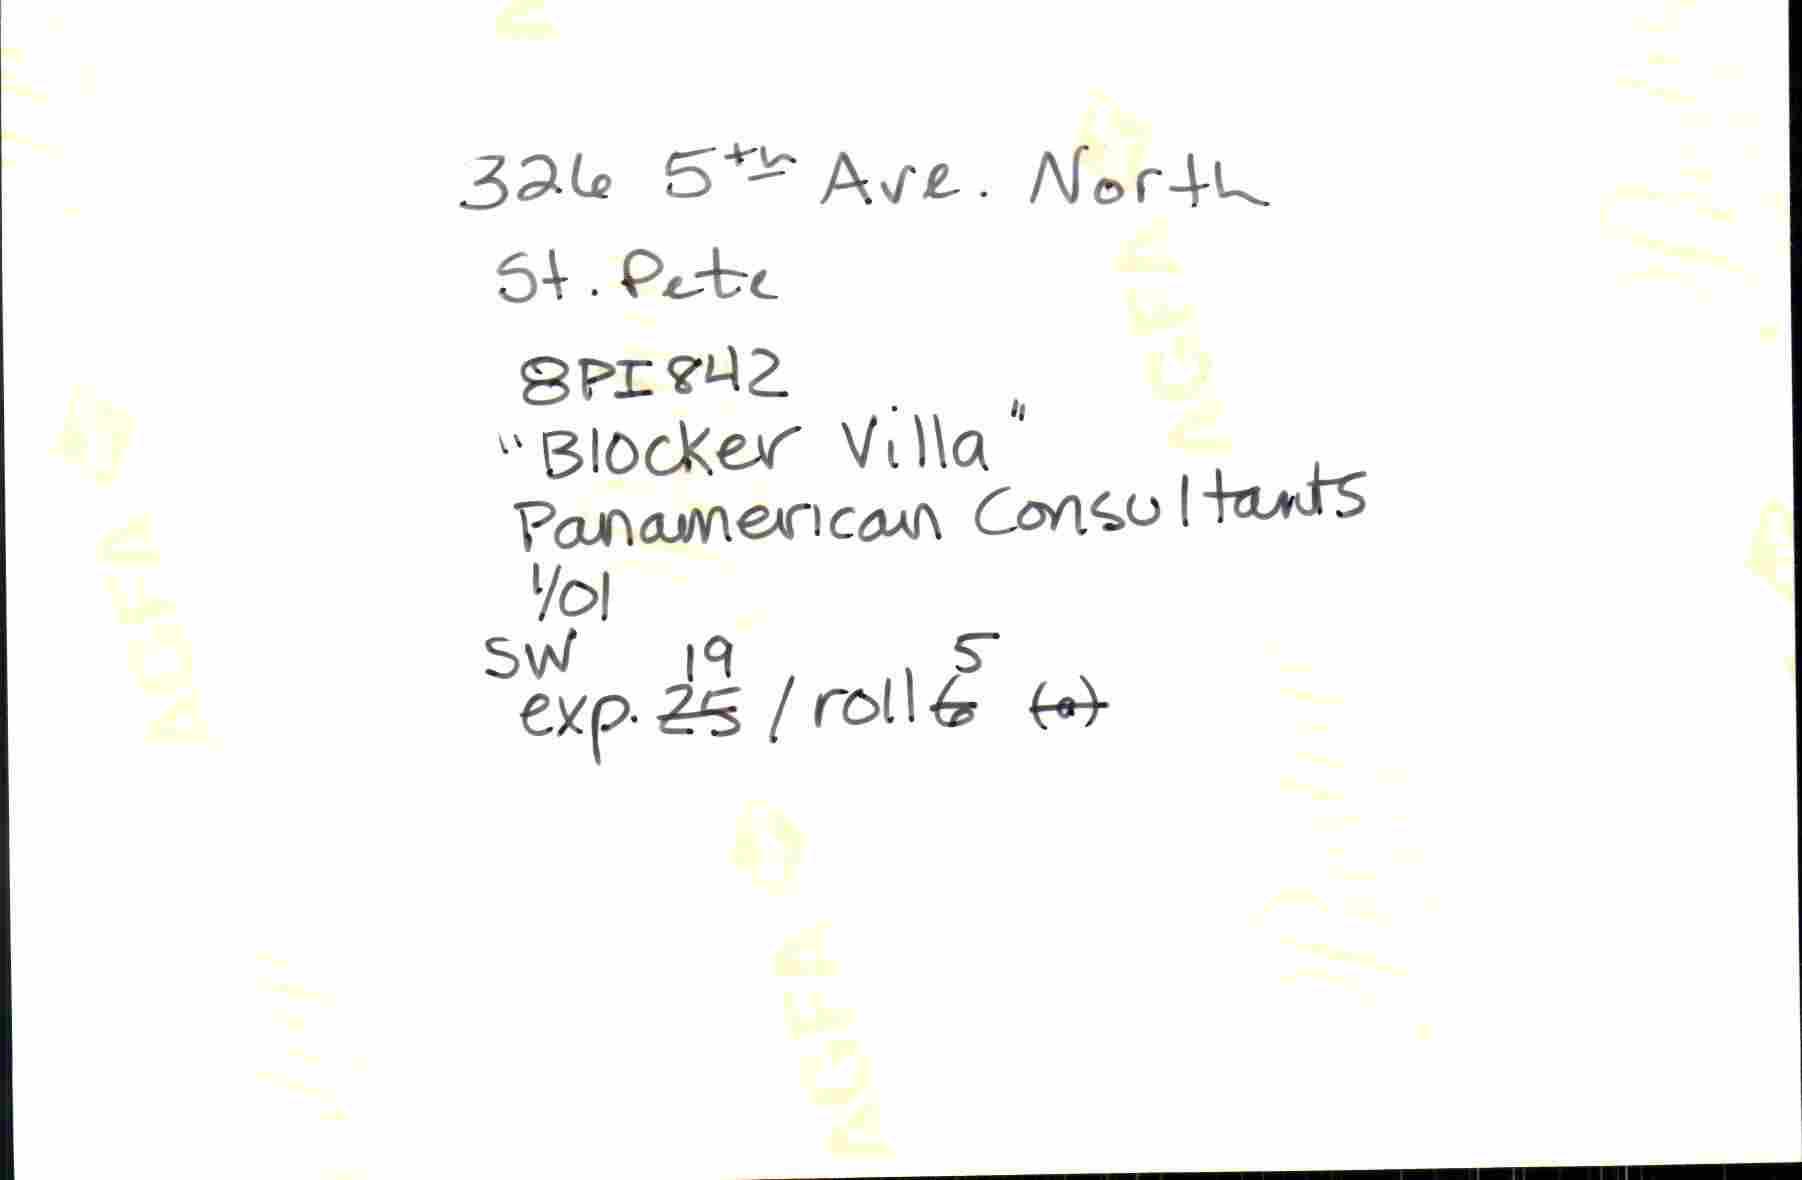 326 5th Ave. North
St. Pete
8PI842
"Blocker Villa"
Panamerican Consultants
1/01
SW 19 5
exp. 25 / roll 6 (a)
AGFA
AGFA
AGFA